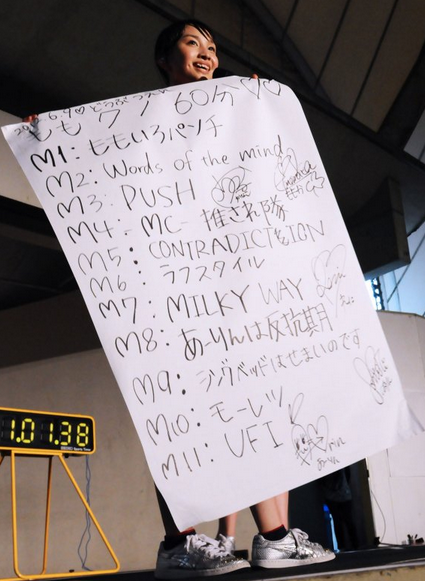 もクノ 60分♡♡
M1: ももいろパンチ
M2: Words of the mind
M3: PUSH
M4: MC- 推され隊
M5: CONTRADICTION
M6: ラフスタイル
M7: MILKY WAY
M8: あーりんは反抗期
M9: シングベッドはせまいのです
M10: モーレツ
M11: UFI
1.01.38
SEIKO